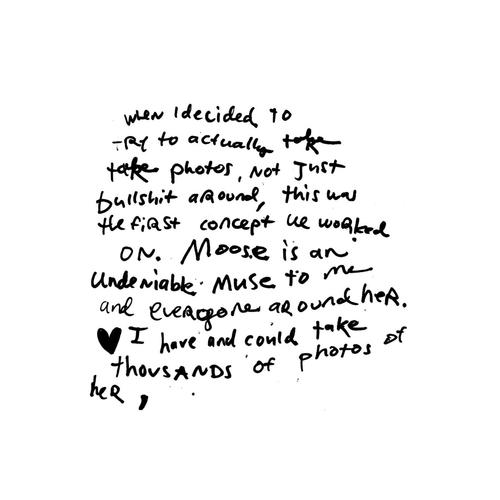 when I decided to
try to actually take
take photos, not just
bullshit around, this was
the first concept we worked
on. Moose is an
undeniable muse to me
and everyone around her.
♥ I have and could take
thousands of photos of
her,